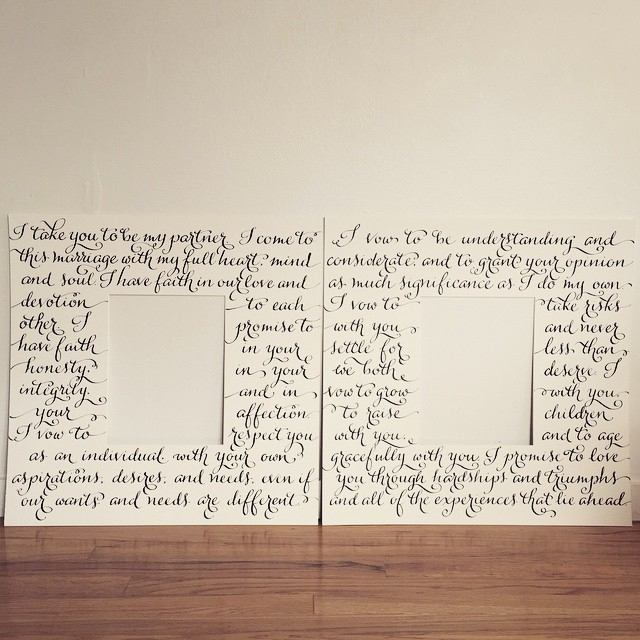 I take you to be my partner. I come to
this marriage with my full heart, mind
and soul. I have faith in our love and
devotion to each
other. I promise to
have faith in your
honesty, in your
integrity and in
your affection.
I vow to respect you
as an individual with your own
aspirations, desires, and needs, even if
our wants and needs are different.
I vow to be understanding and
considerate, and to grant your opinion
as much significance as I do my own.
I vow to take risks
with you and never
settle for less than
we both deserve. I
vow to grow with you,
to raise children
with you, and to age
gracefully with you. I promise to love
you through hardships and triumphs
and all of the experiences that lie ahead